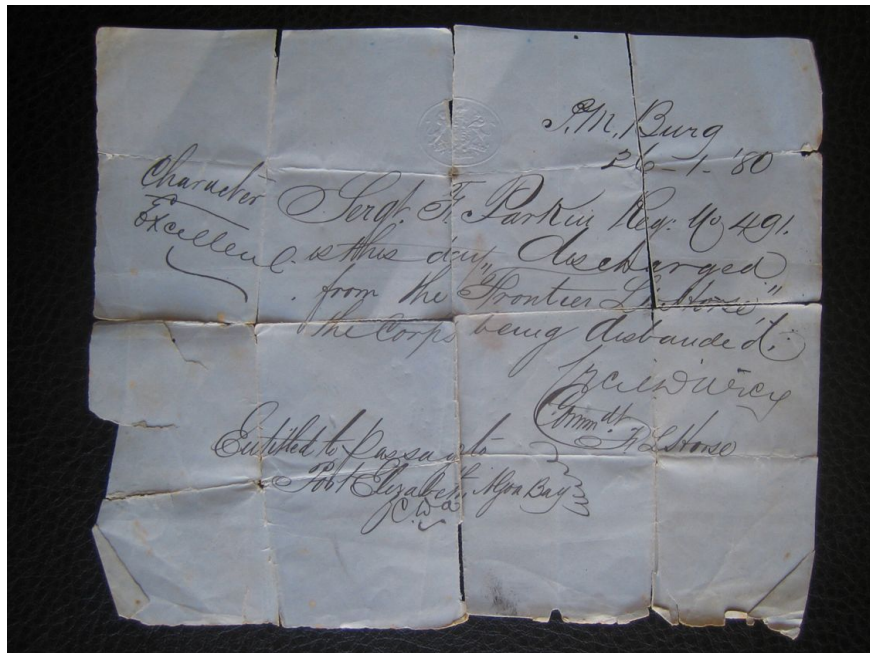 P.M. Burg
26-1-'80
Character
Excellent
Sergt. F. Parkin Reg: No 491.
is this day discharged
from the "Frontier L. Horse,"
the Corps being disbanded.
Commdt
F. L. Horse
Entitled to Passage to
Port Elizabeth, Algoa Bay